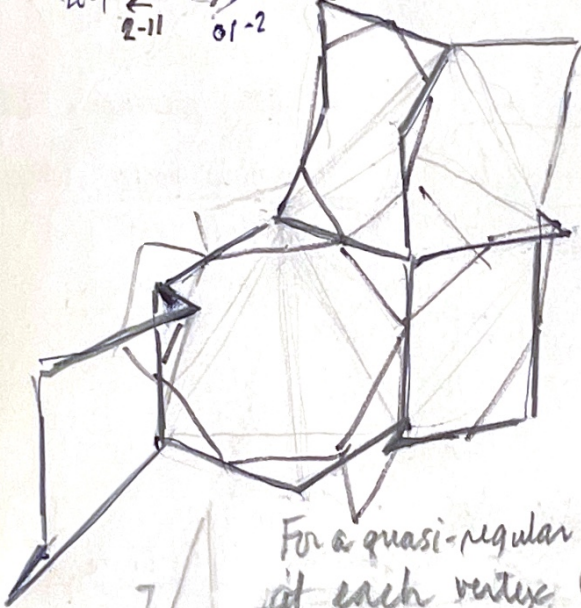 2-11 01-2
For a quasi-regular
at each vertex